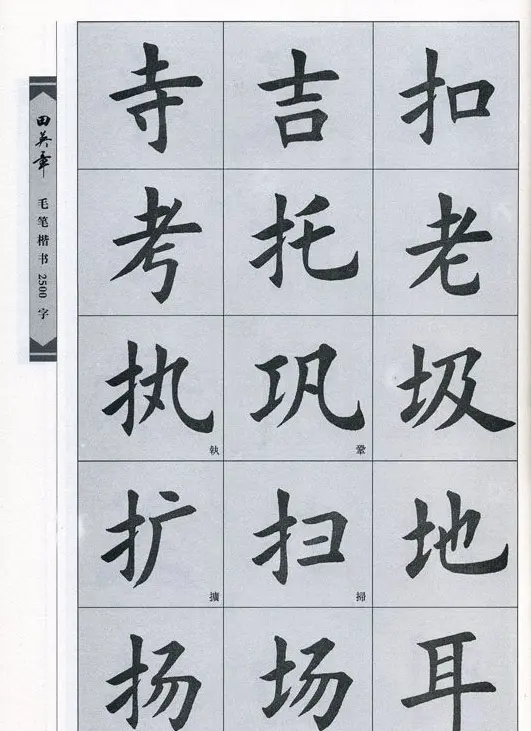 田英章
毛笔楷书 2500 字
寺 吉 扣
考 托 老
执 巩 圾
執 鞏
扩 扫 地
擴 掃
扬 场 耳